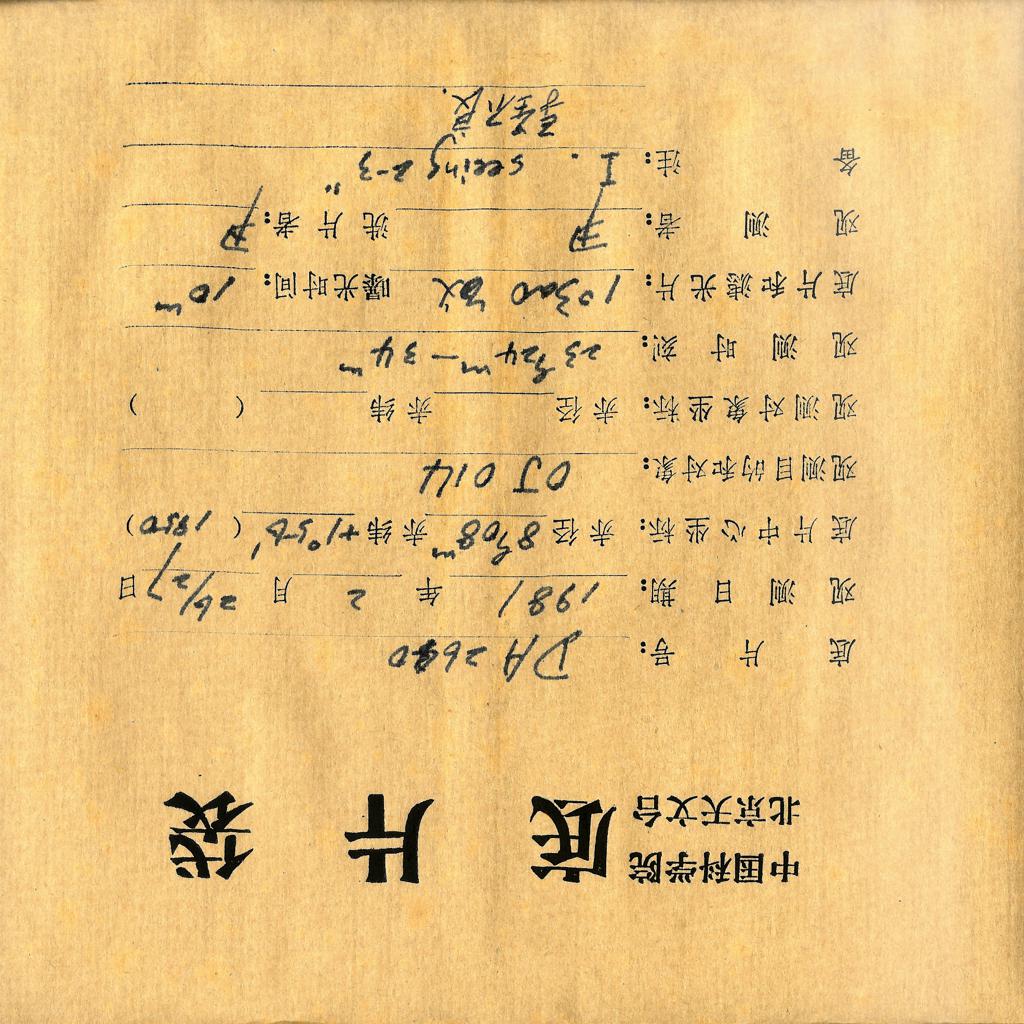 中国科学院
北京天文台
底片袋
底片号: DA 2640
观测日期: 1981年2月26/27日
底片中心坐标: 赤经 8h08m 赤纬 +1°56′ (1950)
观测目的和对象: OJ 014
观测对象坐标: 赤经 赤纬 ( )
观测时刻: 23h24m－34m
底片和滤光片: 103aO 曝光时间: 10m
观测者: 尹 洗片者: 尹
备注: I. seeing 2-3″
不良.